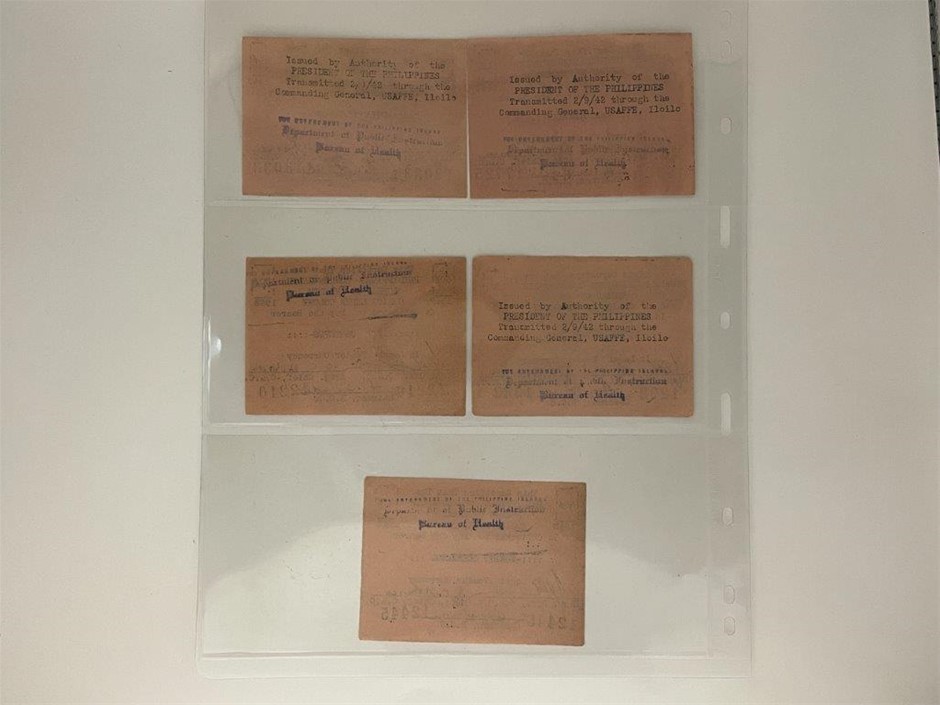 Issued by Authority of the
PRESIDENT OF THE PHILIPPINES
Transmitted 2/9/42 through the
Commanding General, USAFFE, Iloilo
THE GOVERNMENT OF THE PHILIPPINE ISLANDS
Department of Public Instruction
Bureau of Health
Issued by Authority of the
PRESIDENT OF THE PHILIPPINES
Transmitted 2/9/42 through the
Commanding General, USAFFE, Iloilo
THE GOVERNMENT OF THE PHILIPPINE ISLANDS
Department of Public Instruction
Bureau of Health
THE GOVERNMENT OF THE PHILIPPINE ISLANDS
Department of Public Instruction
Bureau of Health
Issued by Authority of the
PRESIDENT OF THE PHILIPPINES
Transmitted 2/9/42 through the
Commanding General, USAFFE, Iloilo
THE GOVERNMENT OF THE PHILIPPINE ISLANDS
Department of Public Instruction
Bureau of Health
THE GOVERNMENT OF THE PHILIPPINE ISLANDS
Department of Public Instruction
Bureau of Health